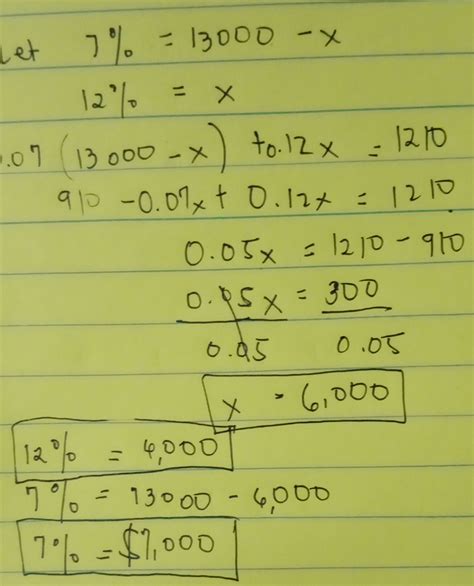 Let 7% = 13000 - x
12% = x
0.07 (13000 - x) + 0.12x = 1210
910 - 0.07x + 0.12x = 1210
0.05x = 1210 - 910
0.05x = 300
0.05 0.05
x = 6,000
12% = 6,000
7% = 13000 - 6,000
7% = $7,000